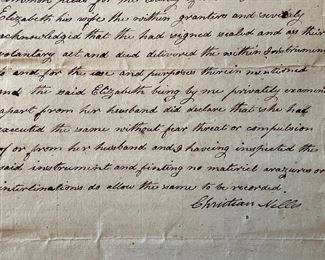 Elizabeth his wife the within grantors and severely
acknowledgid that the had signed sealed and as their
voluntary act and deed delivered the within Instrument
to and for the use and purposes therein mentioned
and the said Elizabeth being by me privately examin
apart from her husband did declare that she had
executed the same without fear threat or compulsion
of or from her husband and I having inspected the
said instrument and finding no material erazures or
interlinations do allow the same to be recorded.
Christian Nells